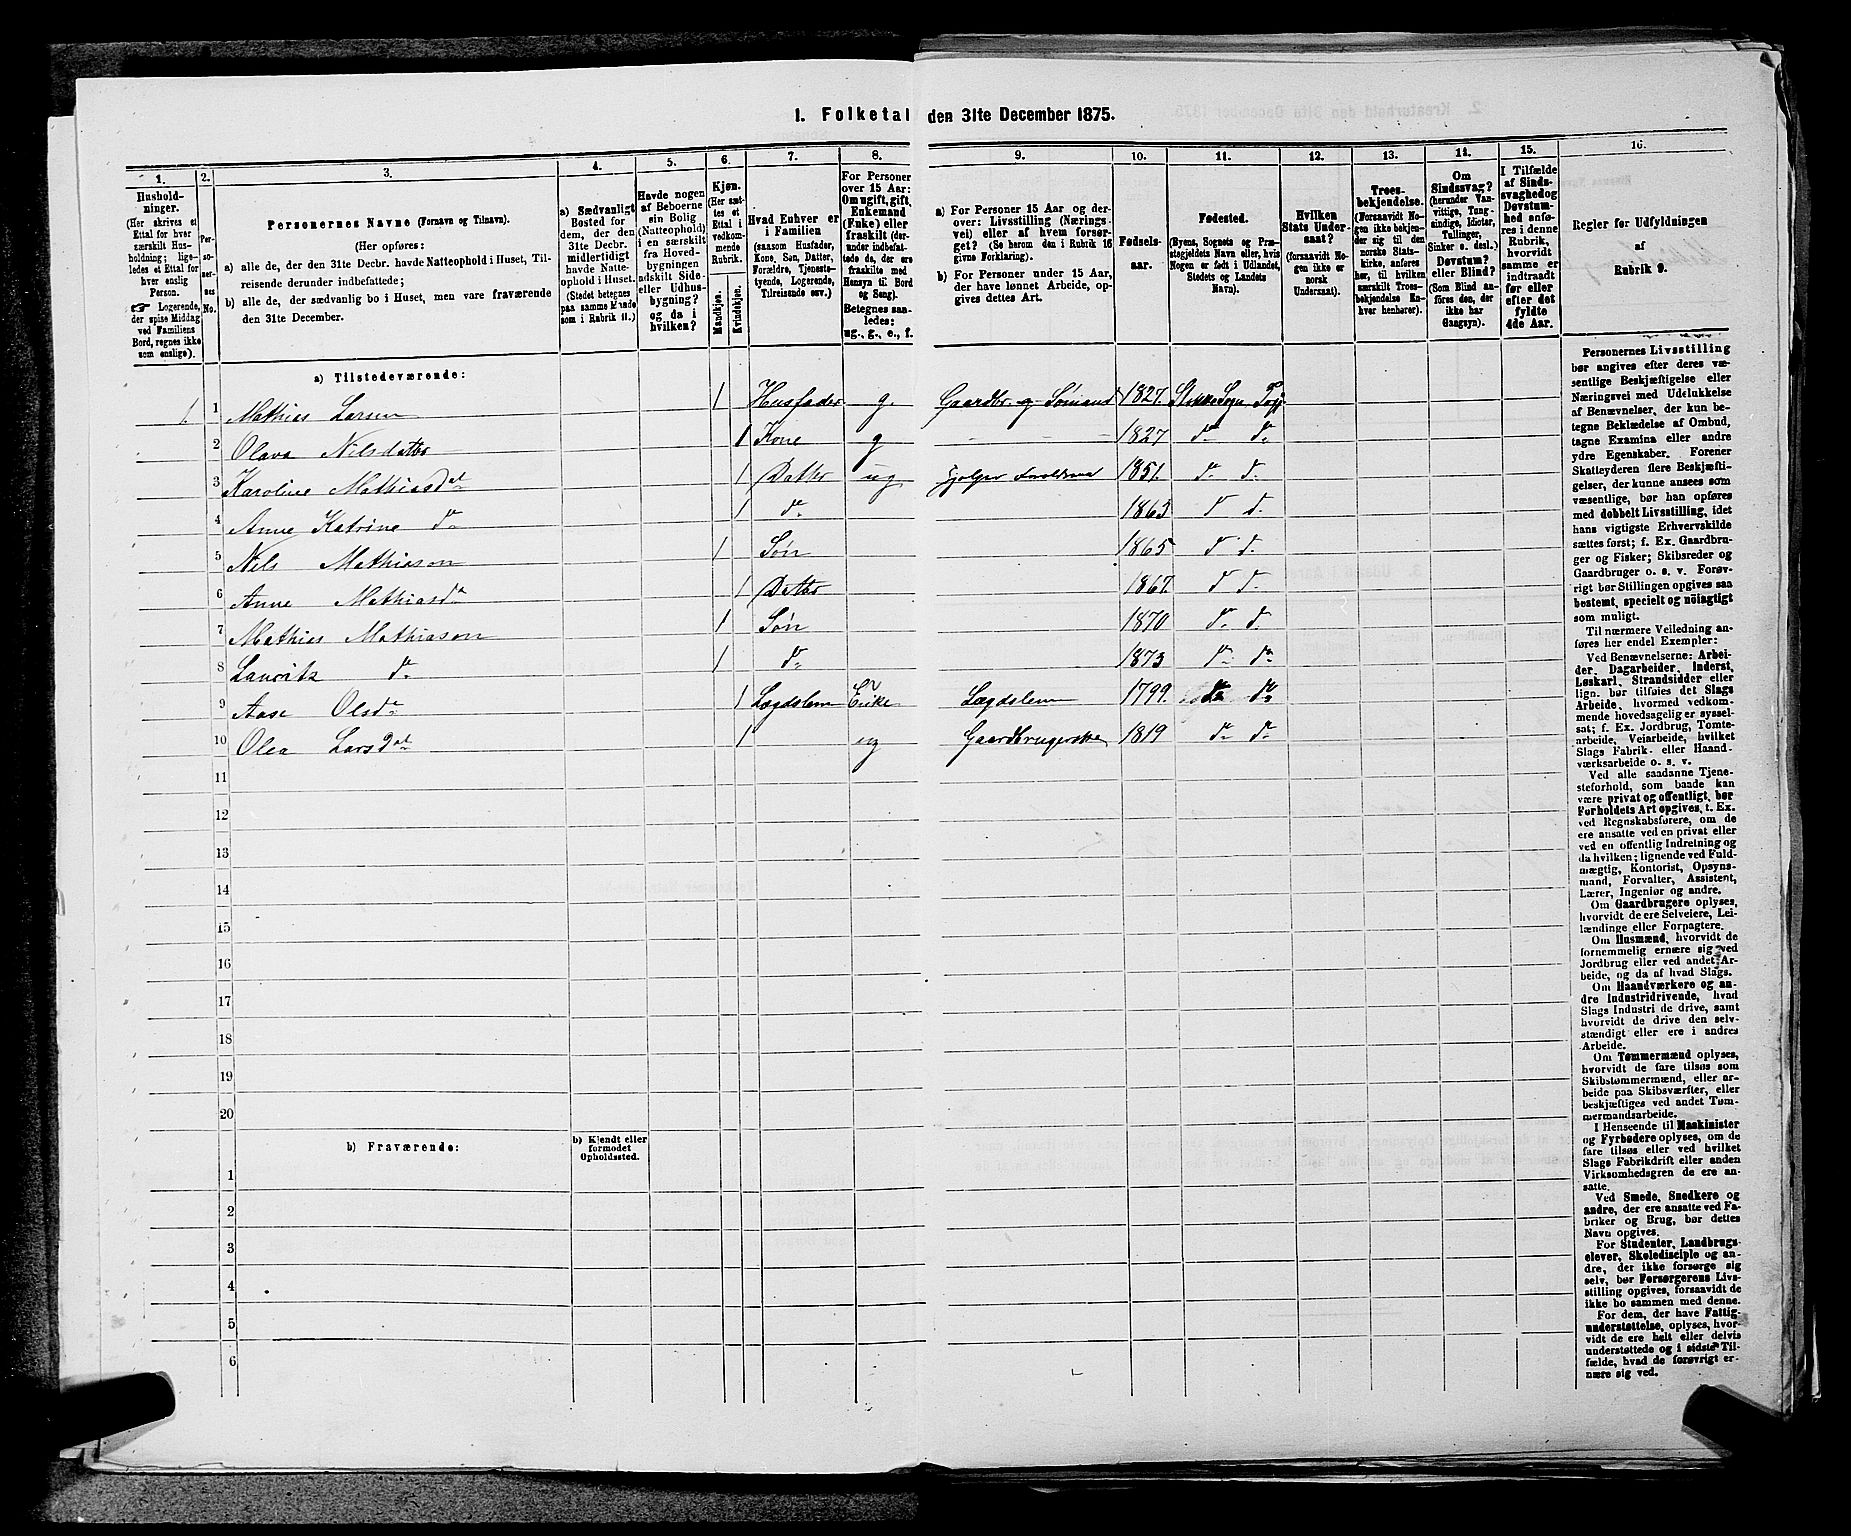 1. Folketal den 31te December 1875.
1. 2. 3. 4. 5. 6. 7. 8. 9. 10. 11. 12. 13. 14. 15. 16.
Hushold-
ninger.
(Her skrives et
Ettal for hver
særskilt Hus-
holdning; lige-
ledes et Ettal for
hver enslig
Person.
☞ Logerende,
der spise Middag
ved Familiens
Bord, regnes ikke
som enslige).
Per-
so-
ner-
nes
No.
Personernes Navne (Fornavn og Tilnavn).
(Her opføres:
a) alle de, der den 31te Decbr. havde Natteophold i Huset, Til-
reisende derunder indbefattede;
b) alle de, der sædvanlig bo i Huset, men vare fraværende
den 31te December.
a) Sædvanligt
Bosted for
dem, der den
31te Decbr.
midlertidigt
havde Natte-
ophold i Huset.
(Stedet betegnes
paa samme Maade
som i Rubrik 11.)
Havde nogen
af Beboerne
sin Bolig
(Natteophold)
i en særskilt
fra Hoved-
bygningen
adskilt Side-
eller Udhus-
bygning?
og da i
hvilken?
Kjøn.
(Her sæt-
tes et
Ettal i
vedkom-
mende
Rubrik.
Mandkjøn.
Kvindekjøn.
Hvad Enhver er
i Familien
(saasom Husfader,
Kone, Søn, Datter,
Forældre, Tjeneste-
tyende, Logerende,
Tilreisende osv.)
For Personer
over 15 Aar:
Om ugift, gift,
Enkemand
(Enke) eller
fraskilt (der-
under indbefat-
tede de, der ere
fraskilte med
Hensyn til Bord
og Seng).
Betegnes saa-
ledes:
ug., g., e., f.
a) For Personer 15 Aar og der-
over: Livsstilling (Nærings-
vei) eller af hvem forsør-
get? (Se herom den i Rubrik 16
givne Forklaring).
b) For Personer under 15 Aar,
der have lønnet Arbeide, op-
gives dettes Art.
Fødsels-
aar.
Fødested.
(Byens, Sognets og Præ-
stegjeldets Navn eller, hvis
Nogen er født i Udlandet,
Stedets og Landets
Navn).
Hvilken
Stats Under-
saat?
(forsaavidt No-
gen ikke er
norsk
Undersaat).
Troes-
bekjendelse.
(Forsaavidt No-
gen ikke bekjen-
der sig til den
norske Stats-
kirke, anføres
her, til hvilken
særskilt Troes-
bekjendelse En-
hver henhører).
Om
Sindssvag?
(herunder Van-
vittige, Tung-
sindige, Idioter,
Tullinger,
Sinker o. desl.)
Døvstum?
eller Blind?
(Som Blind an-
føres den, der
ikke har
Gangsyn).
I Tilfælde
af Sinds-
svaghed og
Døvstum-
hed anfø-
res i denne
Rubrik,
hvorvidt
samme er
indtraadt
før eller
efter det
fyldte
4de Aar.
Regler for Udfyldningen
af
Rubrik 9.
a) Tilstedeværende:
1 1 Mathias Larsen 1 Husfader g. Gaardbr. og Sømand 1827. Stokke Sogn
2 Olava Nilsdatter 1 Kone g — — — 1827 do do
3 Karoline Mathiasdat 1 Datter ug 1851. do do
4 Anne Katrine do 1 do 1863 do do
5 Nils Mathiason 1 Søn 1865 do do
6 Anne Mathiasda 1 Datter 1867. do do
7 Mathias Mathiason 1 Søn 1870 do do
8 Lauritz do 1 do 1873 do do
9 Aase Olsda 1 Lægdslem Enke Lægdslem 1799. do do
10 Olea Larsdat 1 ug Gaardbrugerske 1819 do do
11
12
13
14
15
16
17
18
19
20
b) Fraværende:
b) Kjendt eller
formodet
Opholdssted.
1
2
3
4
5
6
Personernes Livsstilling
bør angives efter deres væ-
sentlige Beskjæftigelse eller
Næringsvei med Udelukkelse
af Benævnelser, der kun be-
tegne Beklædelse af Ombud,
tagne Examina eller andre
ydre Egenskaber. Forener
Skatteyderen flere Beskjæfti-
gelser, der kunne ansees som
væsentlige, bør han opføres
med dobbelt Livsstilling, idet
hans vigtigste Erhvervskilde
sættes først; f. Ex. Gaardbru-
ger og Fisker; Skibsreder og
Gaardbruger o. s. v. Forøv-
rigt bør Stillingen opgives saa
bestemt, specielt og nøiagtigt
som muligt.
Til nærmere Veiledning an-
føres her endel Exempler:
Ved Benævnelserne: Arbei-
der, Dagarbeider, Inderst,
Løskarl, Strandsidder eller
lign. bør tilføies det Slags
Arbeide, hvormed vedkom-
mende hovedsagelig er syssel-
sat; f. Ex. Jordbrug, Tomte-
arbeide, Veiarbeide, hvilket
Slags Fabrik- eller Haand-
værksarbeide o. s. v.
Ved alle saadanne Tjene-
steforhold, som baade kan
være privat og offentligt, bør
Forholdets Art opgives, t. Ex.
ved Regnskabsførere, om de
ere ansatte ved en privat eller
ved en offentlig Indretning og
da hvilken; lignende ved Fuld-
mægtig, Kontorist, Opsyns-
mand, Forvalter, Assistent,
Lærer, Ingeniør og andre.
Om Gaardbrugere oplyses,
hvorvidt de ere Selveiere, Lei-
lændinge eller Forpagtere.
Om Husmænd, hvorvidt de
fornemmelig ernære sig ved
Jordbrug eller ved andet Ar-
beide, og da af hvad Slags.
Om Haandværkere og an-
dre Industridrivende, hvad
Slags Industri de drive, samt
hvorvidt de drive den selv-
stændigt eller ere i andres
Arbeide.
Om Tømmermænd oplyses,
hvorvidt de fare tilsøs som
Skibstømmermænd, eller ar-
beide paa Skibsværfter, eller
beskjæftiges ved andet Tøm-
mermandsarbeide.
I Henseende til Maskinister
og Fyrbødere oplyses, om de
fare tilsøs eller ved hvilket
Slags Fabrikdrift eller anden
Virksomhedsgren de ere an-
satte.
Ved Smede, Snedkere og
andre, der ere ansatte ved Fa-
briker og Brug, bør dettes
Navn opgives.
For Studenter, Landbrugs-
elever, Skoledisciple og an-
dre, der ikke forsørge sig
selv, bør Forsørgerens Livs-
stilling opgives, forsaavidt de
ikke bo sammen med denne.
For dem, der have Fattig-
understøttelse, oplyses, hvor-
vidt de ere helt eller delvis
understøttede og i sidste Til-
fælde, hvad de forøvrigt er-
nære sig ved.